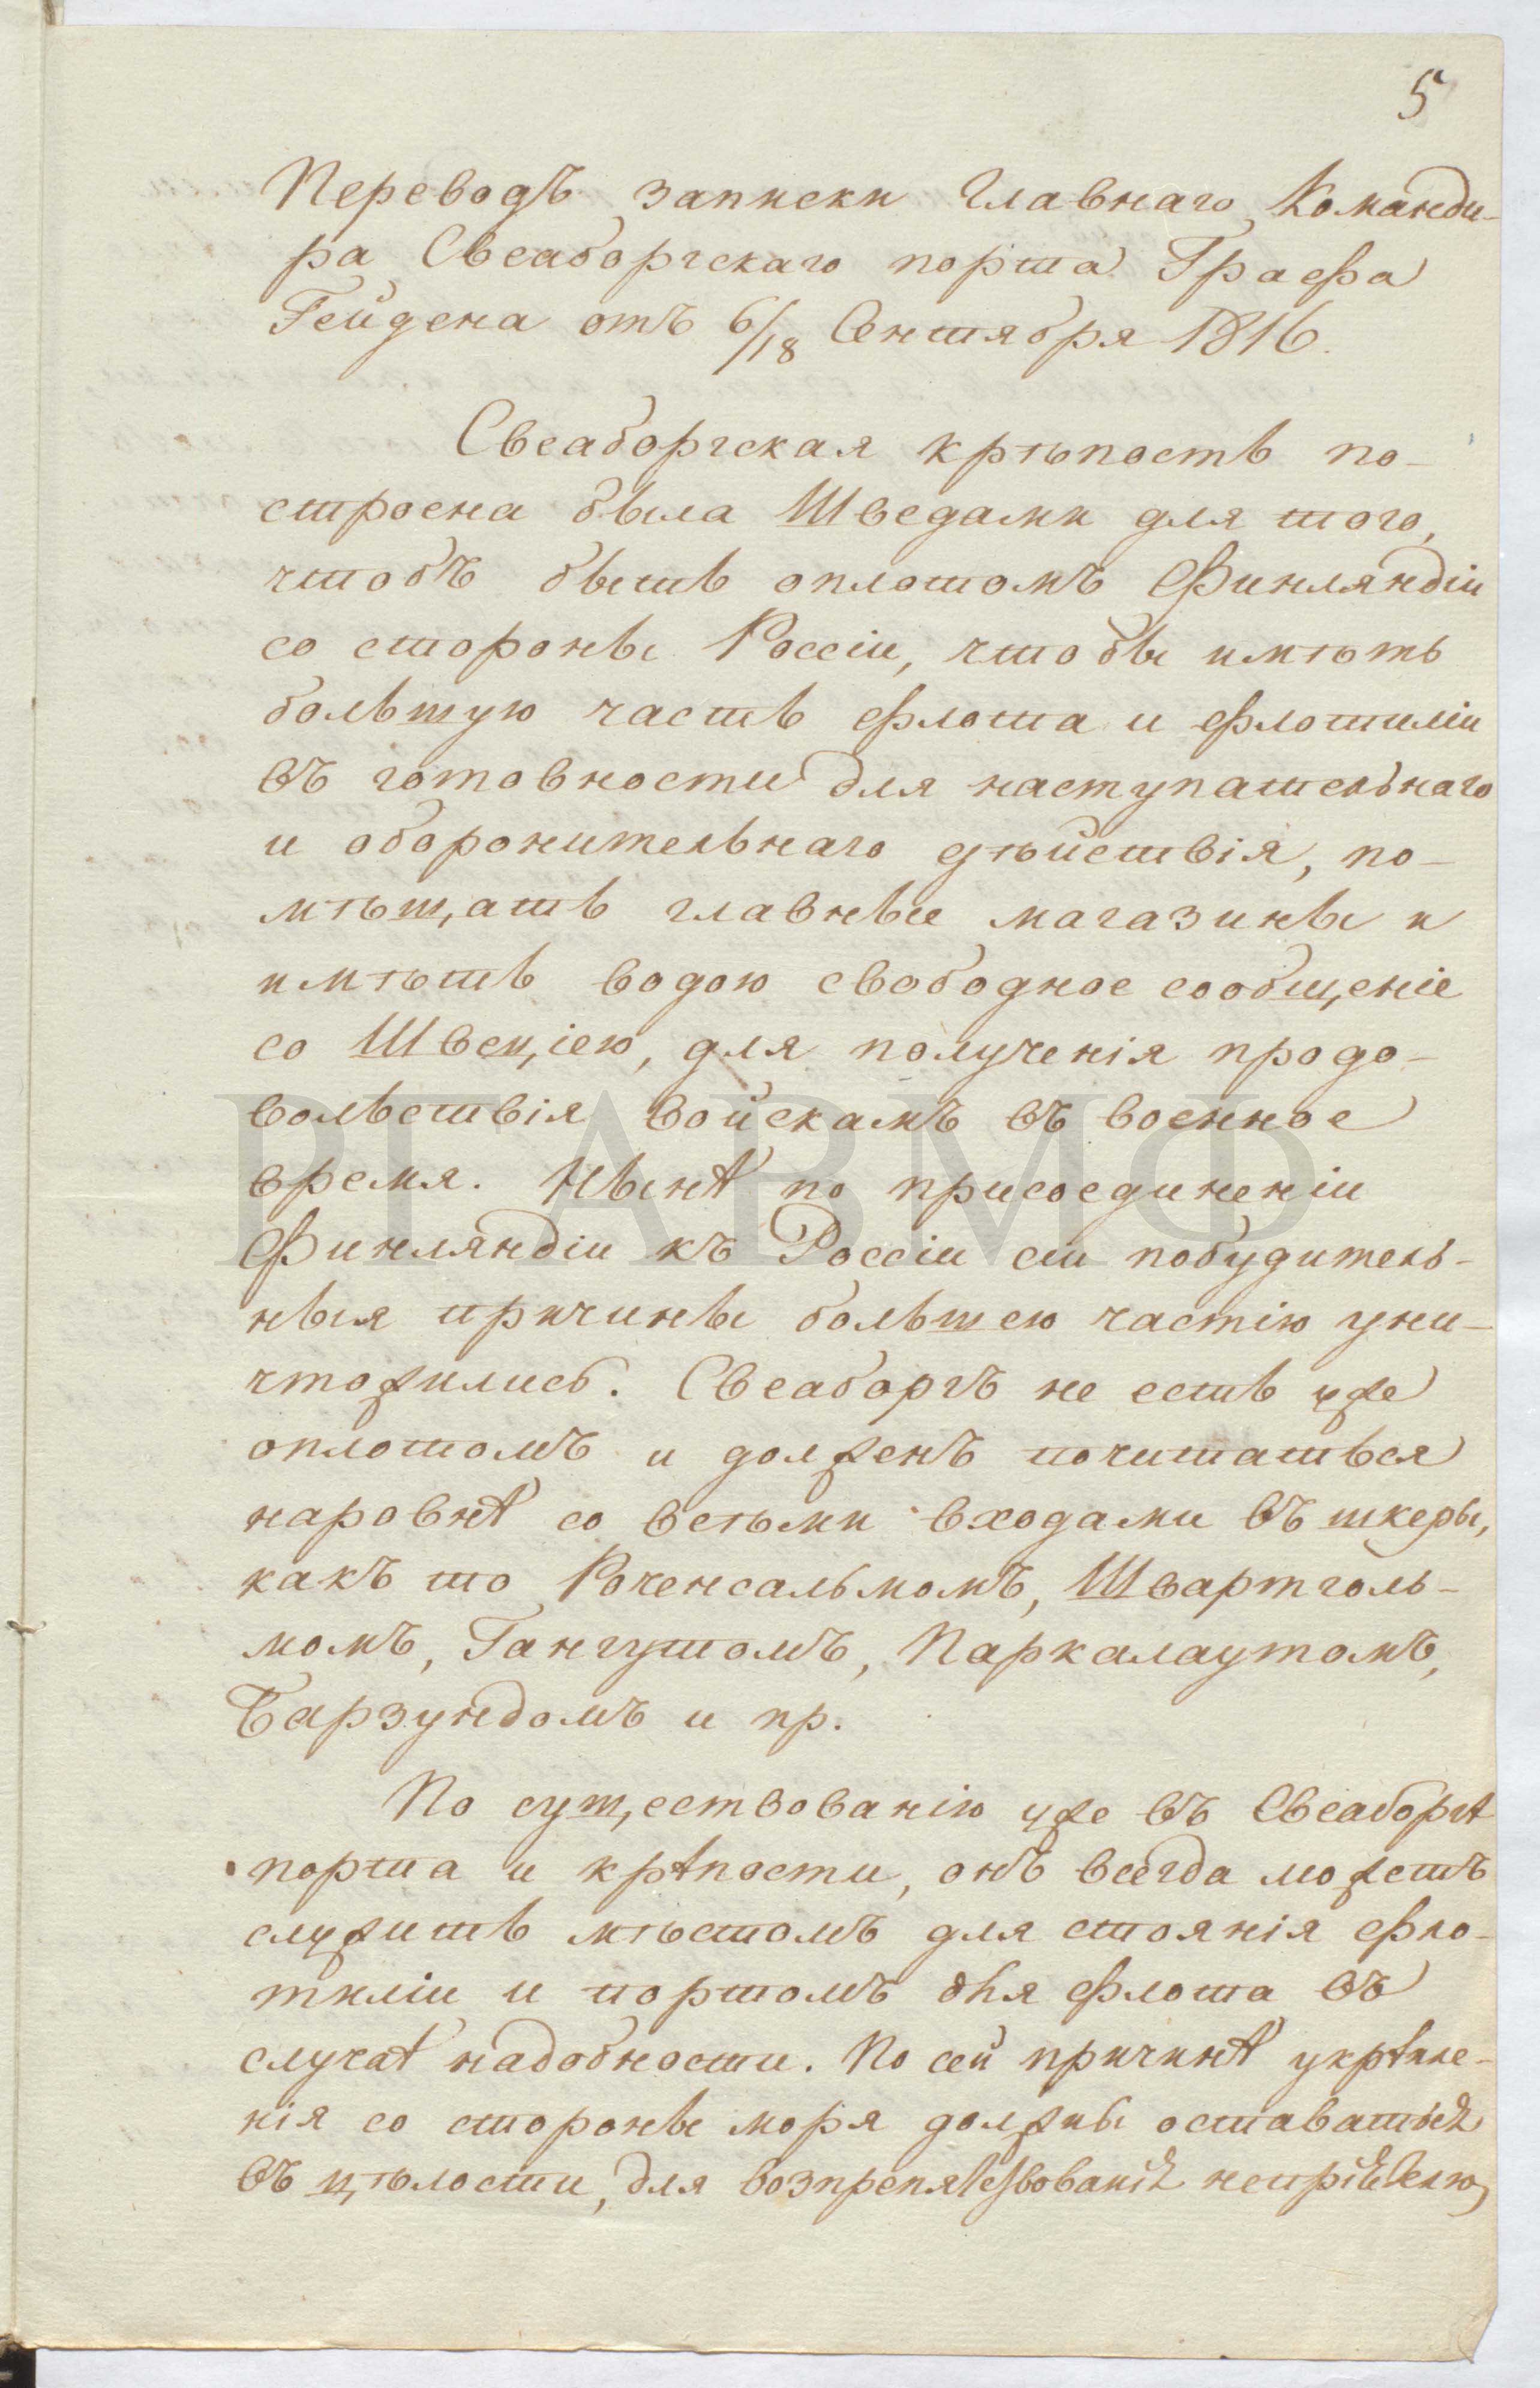 5
Переводъ записки Главнаго Команди-
ра Свеаборгскаго порта Графа
Гейдена отъ 6/18 Сентября 1816.
Свеаборгская крѣпость по-
строена была Шведами для того,
чтобъ быть оплотомъ Финляндіи
со стороны Россіи, чтобы имѣть
большую часть флота и флотиліи
въ готовности для наступательнаго
и оборонительнаго дѣйствія, по-
мѣщать главные магазины и
имѣть водою свободное сообщеніе
со Швеціею, для полученія продо-
вольствія войскамъ въ военное
время. Нынѣ по присоединеніи
Финляндіи къ Россіи сіи побудитель-
ныя причины большею частію уни-
чтожились. Свеаборгъ не есть уже
оплотомъ и долженъ почитаться
наровнѣ со всѣми входами въ шкеры,
какъ то Роченсальмомъ, Швартголь-
момъ, Гангутомъ, Паркалаутомъ,
Барзундомъ и пр.
По существованію уже въ Свеаборгѣ
порта и крѣпости, онъ всегда можетъ
служить мѣстомъ для стоянія фло-
тиліи и портомъ для флота въ
случаѣ надобности. По сей причинѣ укрѣпле-
нія со стороны моря должны оставаться
въ цѣлости, для возпрепятствованія непріятелю
РГАВМФ